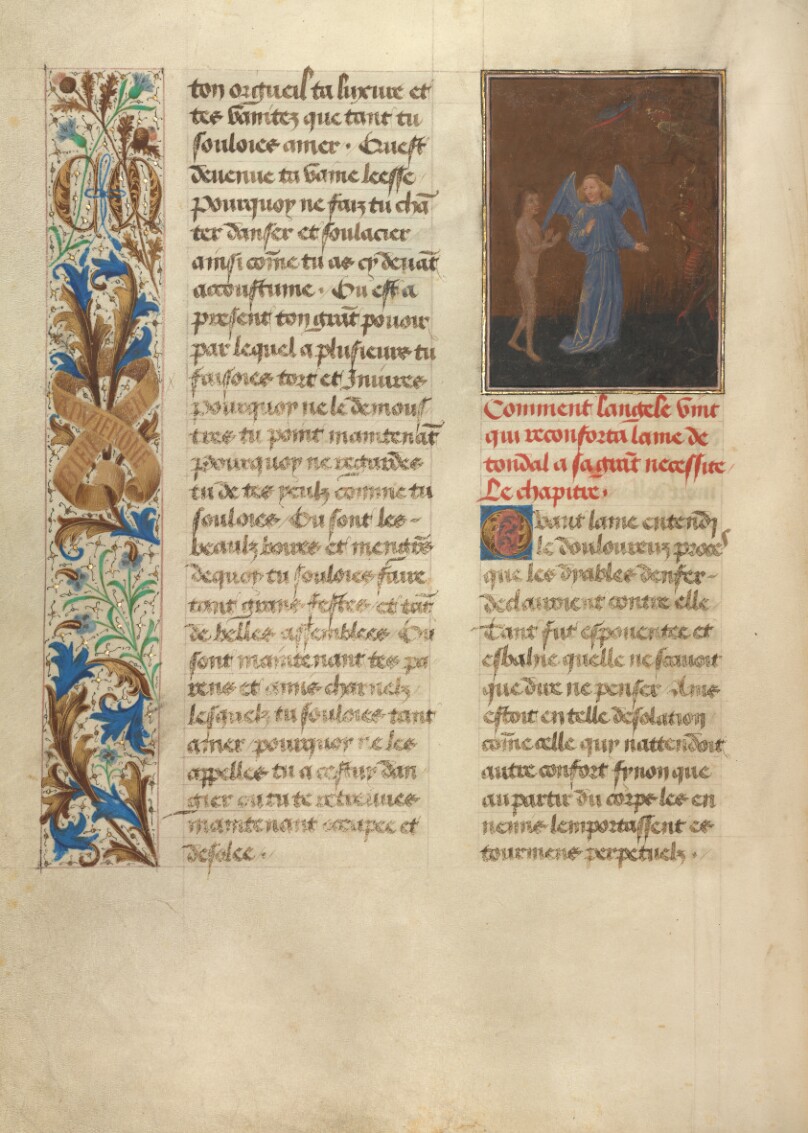 ton orgueil ta luxure et
tes vanitez que tant tu
souloies amer. Quest
deuenue ta vaine leesse
Pourquoy ne faiz tu chā
ter danser et soulacier
ainsi com̄e tu as cy deuāt
acoustume. Ou est a
present ton grāt pouoir
par lequel a plusieurs tu
faisoies tort et Iniures
pourquoy ne le demous
tres tu point maintenāt
Pourquoy ne regardes
tu de tes yeulz comme tu
souloies Ou sont les
beaulz boires et mengiers
dequoy tu souloies faire
tant grans festes et tāt
de belles assemblees Ou
sont maintenant tes pa
rens et amis charnelz
lesquelz tu souloies tant
amer pourquoy ne les
appelles tu a cestuy dan
gier ou tu te retreuues
maintenant occupee et
desolee.
Comment langele vint
qui reconforta lame de
tondal a sa grāt necessite
Le chapitre.
Quant lame entendy
le douloureux proces
que les dyables denfer
declauoient contre elle
Tant fut espouentee et
esbahie quelle ne scauoit
que dire ne penser Ains
estoit en telle desolation
com̄e celle quy nattendoit
autre confort synon que
au partir du corps les en
nemis lemportassent es
tourmens perpetuelz.